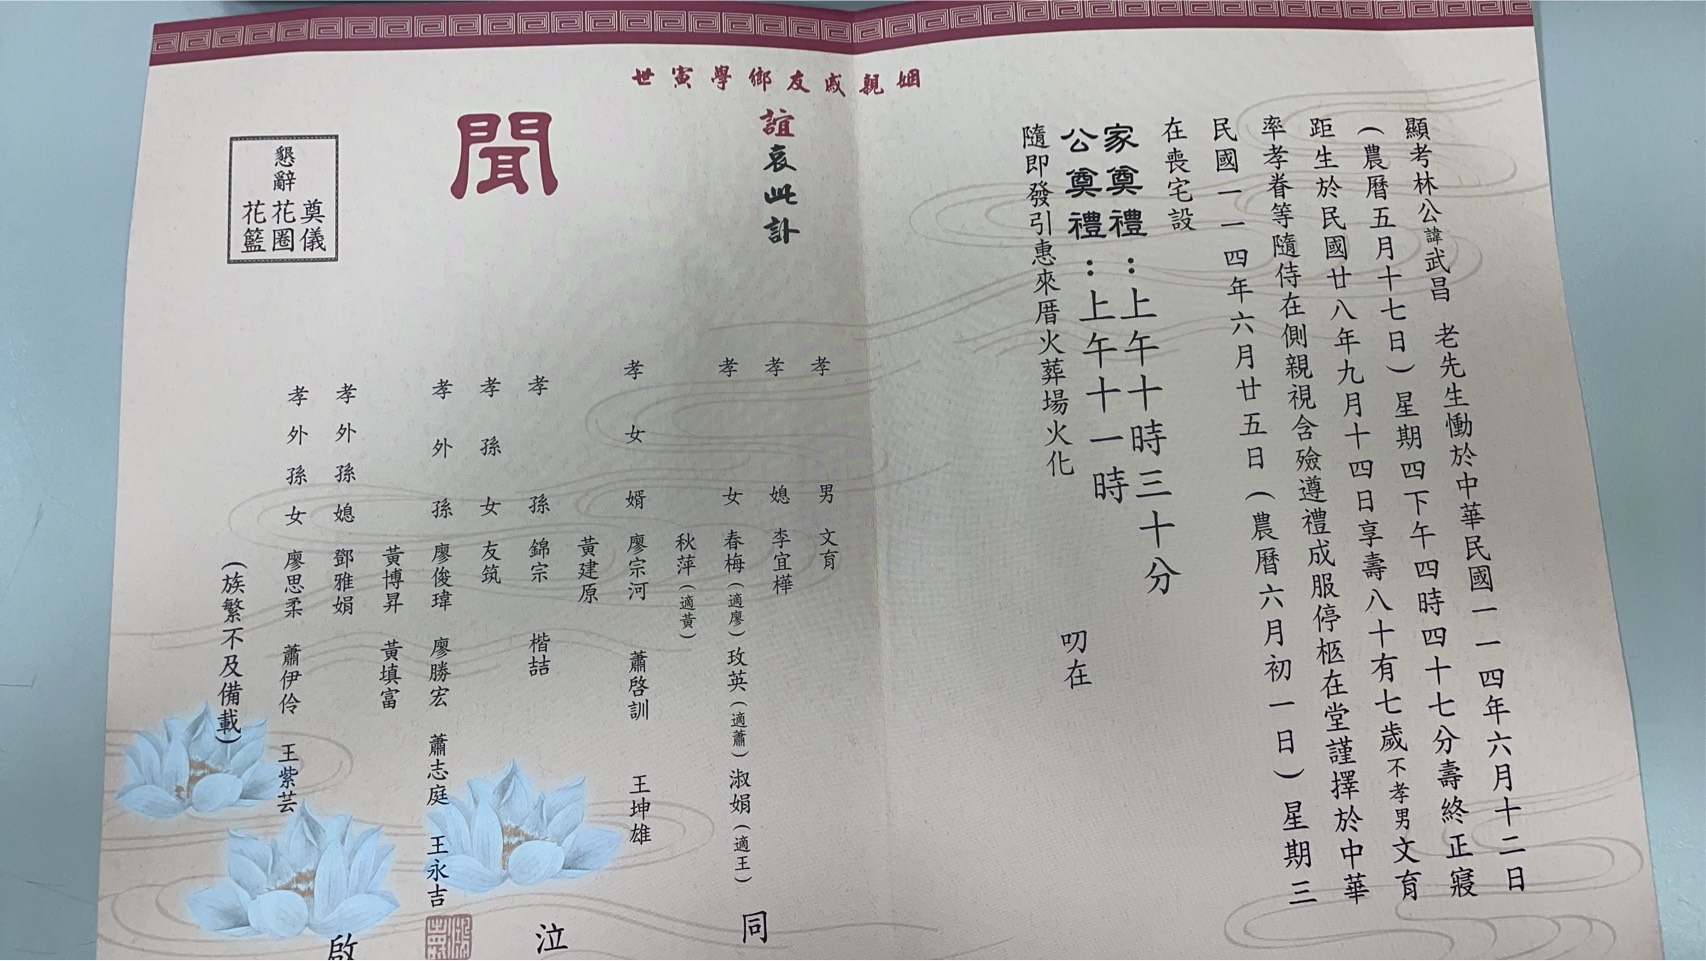 顯考林公諱武昌 老先生慟於中華民國一一四年六月十二日
(農曆五月十七日)星期四下午四時四十七分壽終正寢
距生於民國廿八年九月十四日享壽八十有七歲不孝男文育
率孝眷等隨侍在側親視含殮遵禮成服停柩在堂謹擇於中華
民國一一四年六月廿五日(農曆六月初一日)星期三
在喪宅設
家奠禮:上午十時三十分
公奠禮:上午十一時
隨即發引惠來厝火葬場火化 叨在
姻親戚友鄉學寅世
誼哀此訃
聞
孝男 文育
孝媳 李宜樺
孝女 春梅(適廖) 玫英(適蕭) 淑娟(適王)
秋萍(適黃)
孝女婿 廖宗河 蕭啓訓 王坤雄
黃建原
孝孫 錦宗 楷喆
孝孫女 友筑
孝外孫 廖俊瑋 廖勝宏 蕭志庭 王永吉
黃博昇 黃填富
孝外孫媳 鄧雅娟
孝外孫女 廖思柔 蕭伊伶 王紫芸
(族繁不及備載)
同 泣 啟
懇辭
奠儀
花圈
花籃